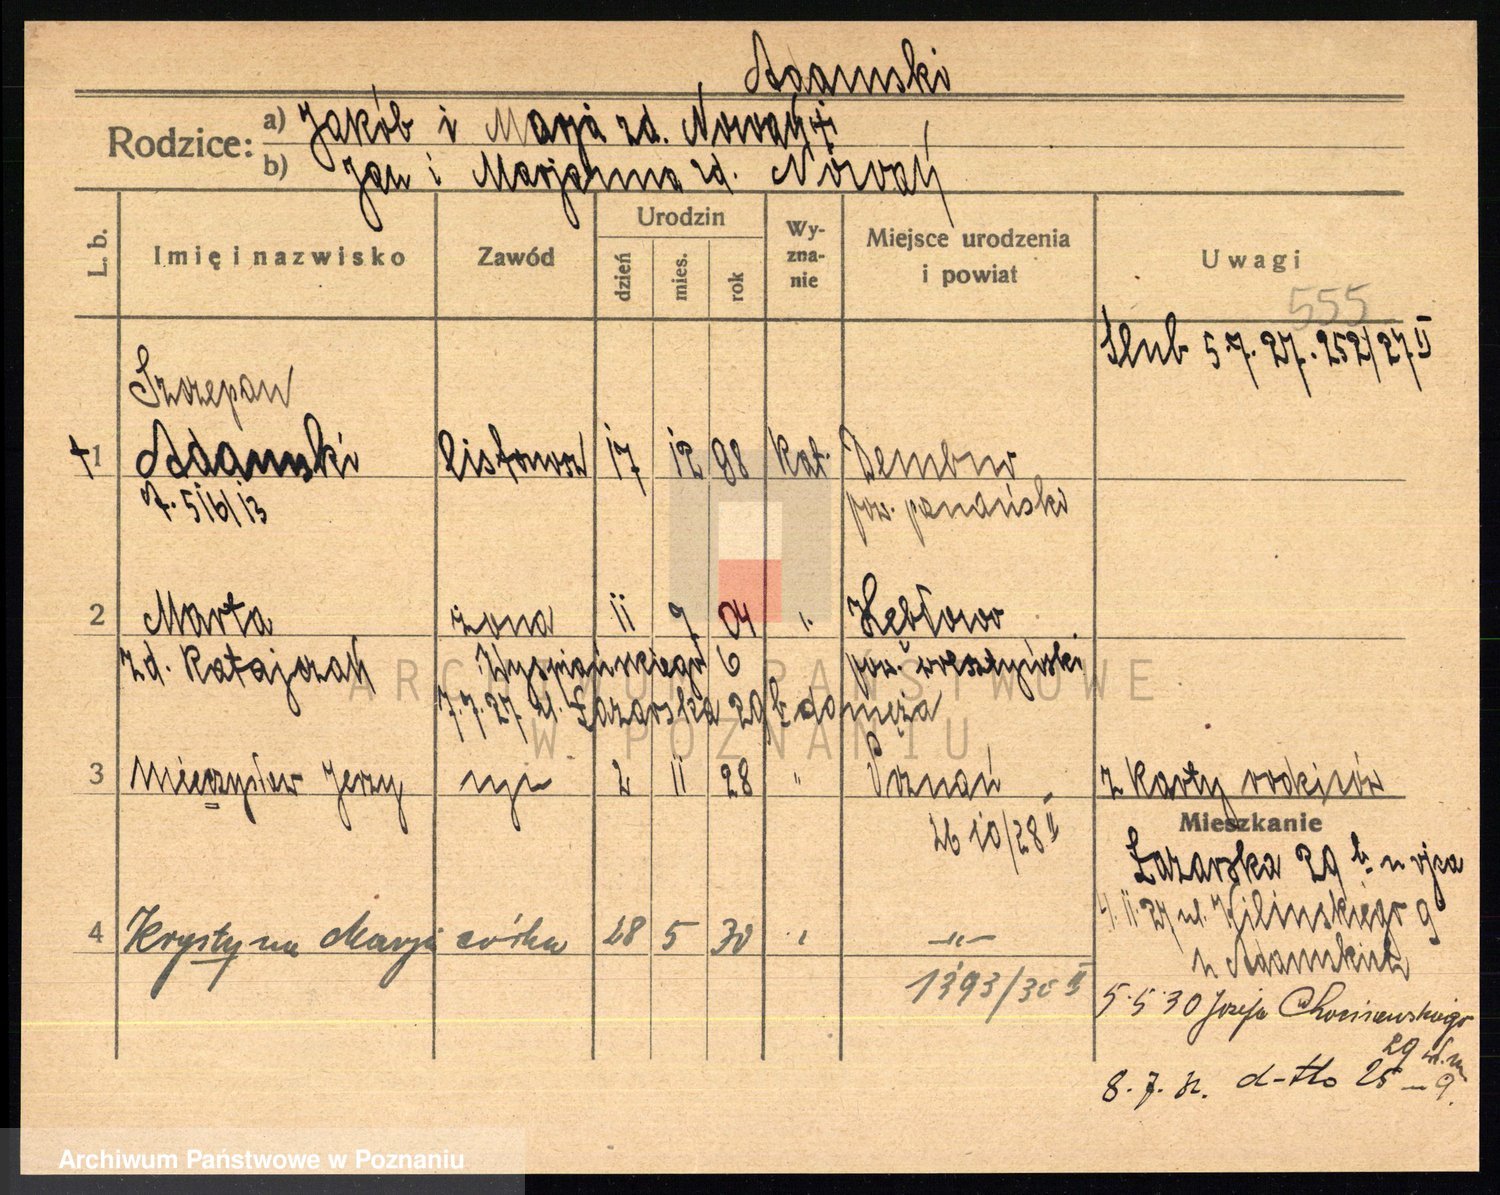 Adamski
Rodzice: a) Jakób i Marja zd. Nowak
b) Jan i Marjanna zd. Nowak
L. b.
Imię i nazwisko
Zawód
Urodzin
dzień
mies.
rok
Wy-
zna-
nie
Miejsce urodzenia
i powiat
Uwagi
555
Ślub 5.7.27. 252/27 II
Szczepan
†1 Adamski listonosz 17 12 98 kat.
516/13
pow. poznański
2 Marta żona 11 9 04
zd. Katajczak Wyspiańskiego 6 pow. wolsztyński
7.7.27 ul. Łazarska 29 b do męża
3 Mieczysław Jerzy syn 2 11 28 " Poznań z karty rodziców
2610/28 II
Mieszkanie
Łazarska 29 b u ojca
4.11.27 ul. Kilińskiego 9
u Adamskich
4 Krystyna Marja córka 28 5 30 " -"-
1393/30 II
5.5.30 Józefa Chociszewskiego
29
8.7.31. d-tto 25 – 9.
ARCHIWUM PAŃSTWOWE
W POZNANIU
Archiwum Państwowe w Poznaniu